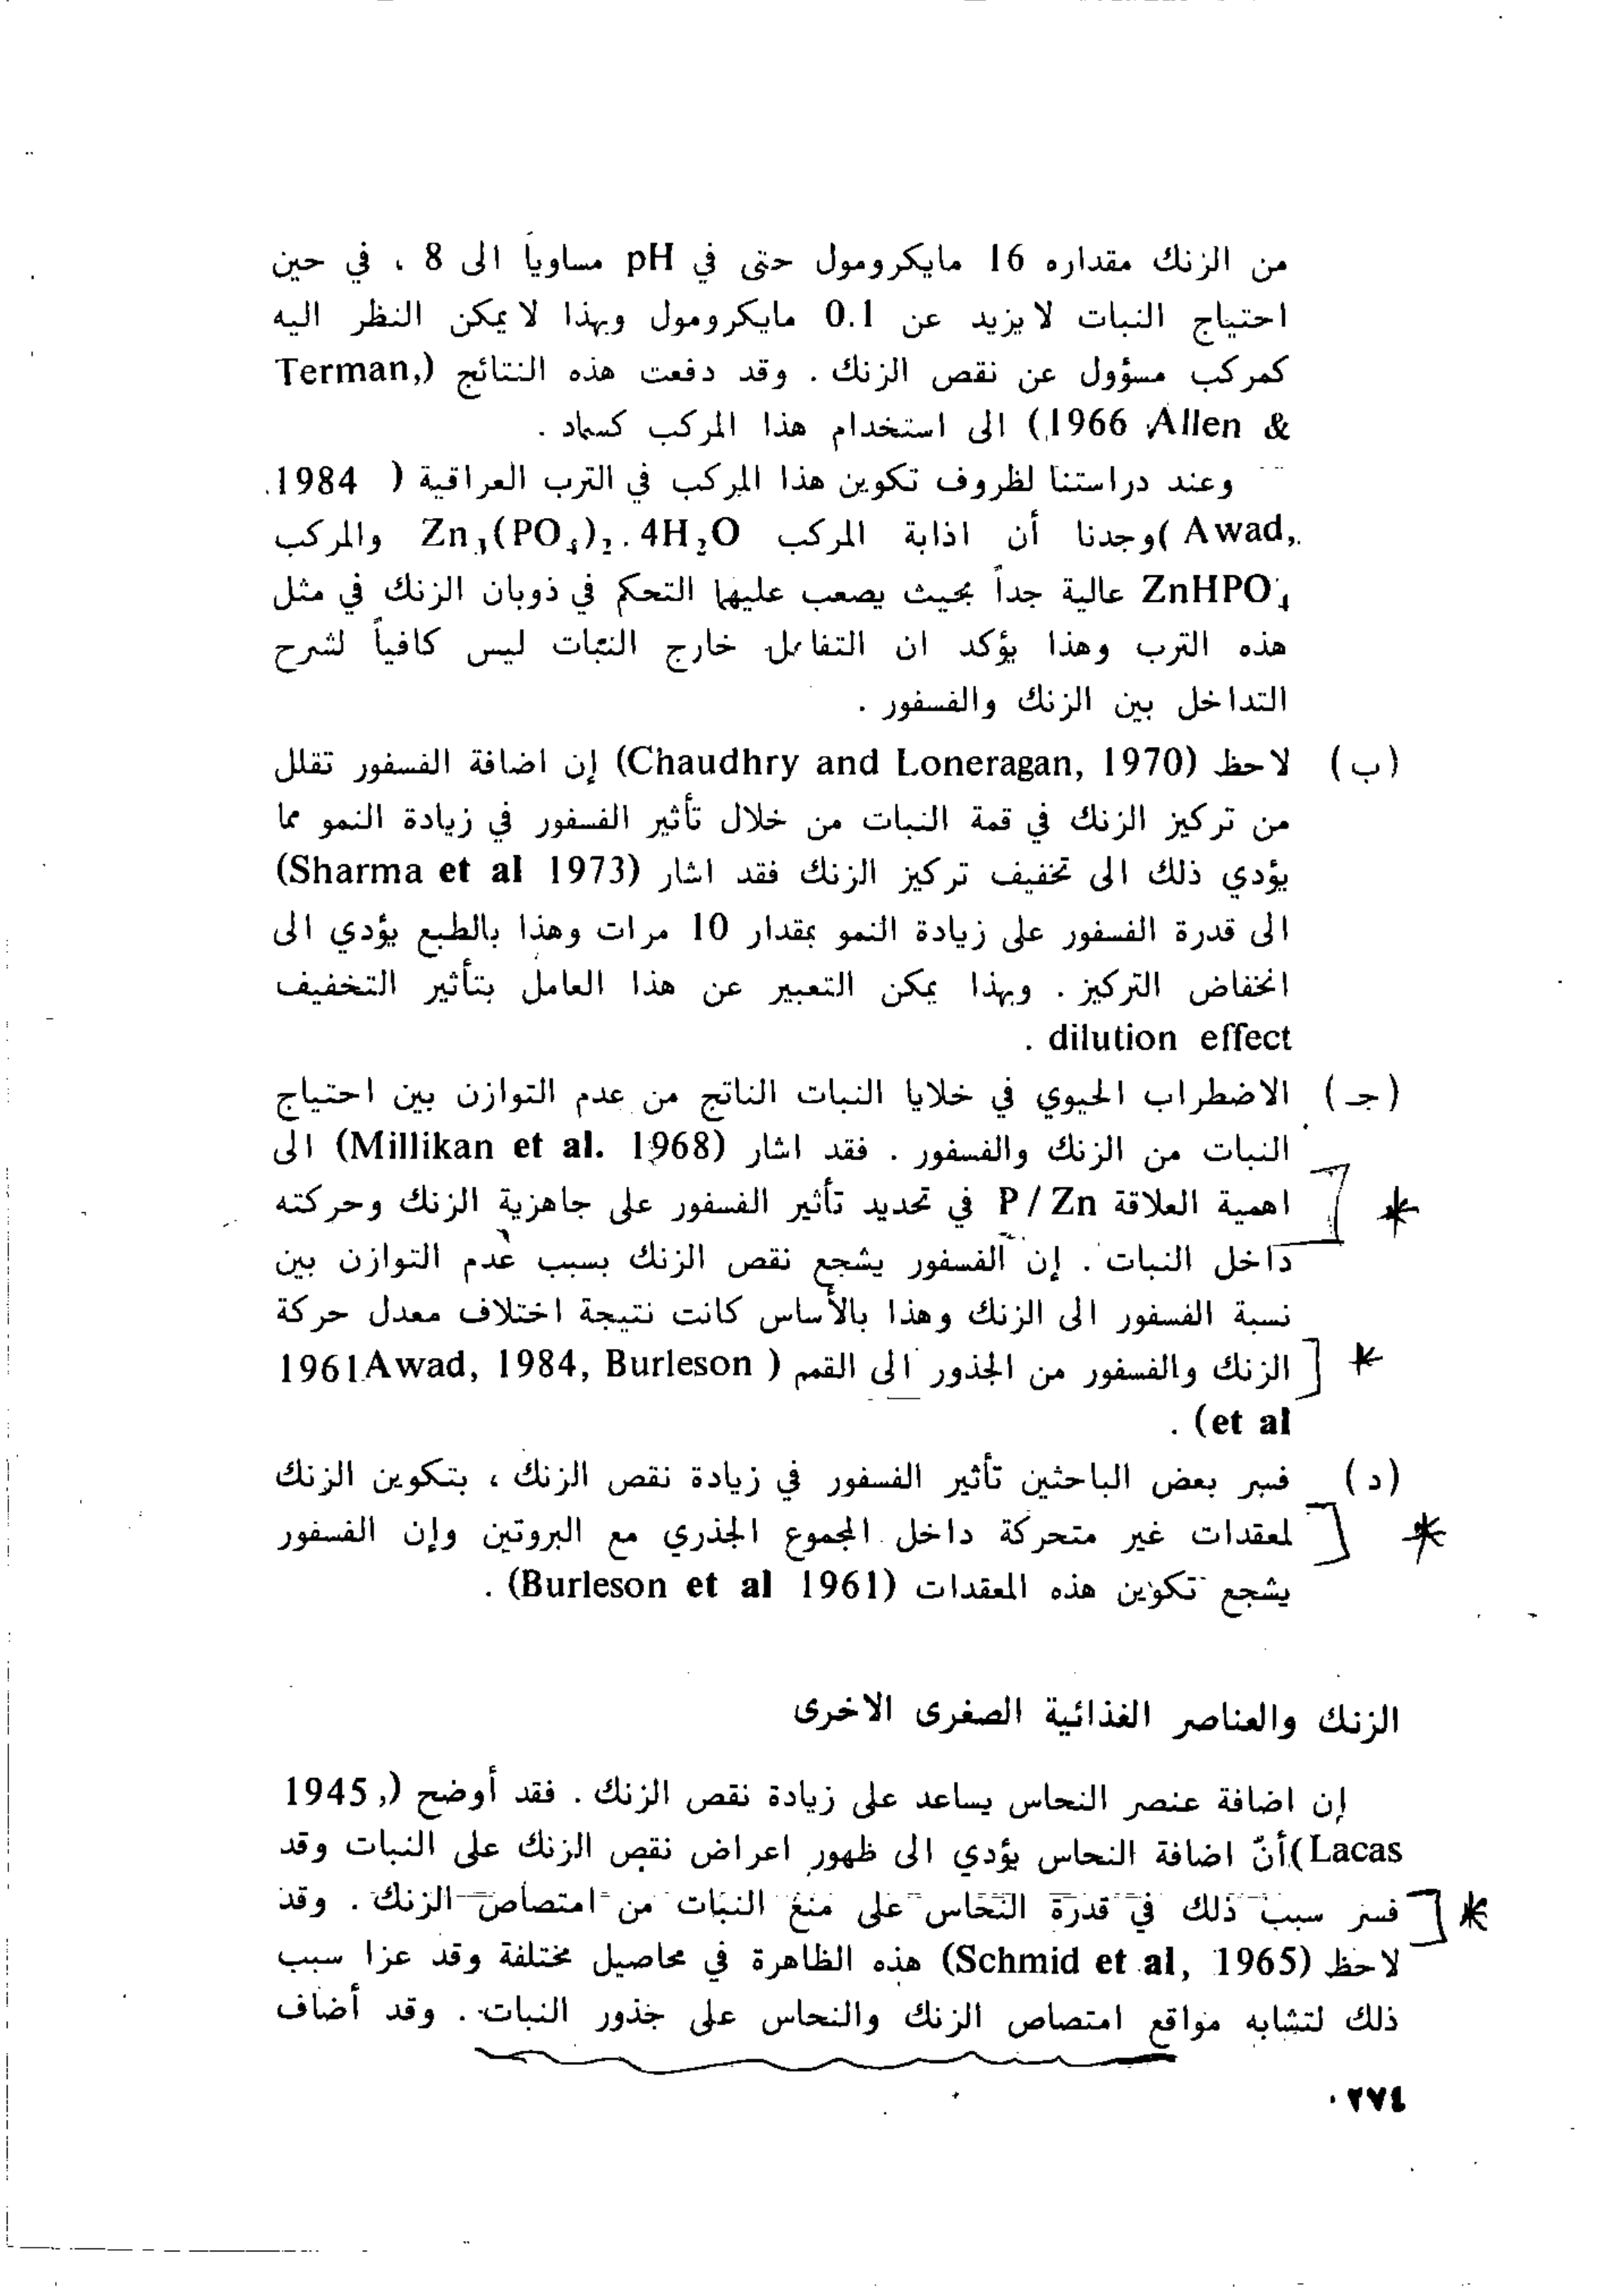 من الزنك مقداره 16 مايكرومول حتى في pH مساوياً الى 8 ، في حين
احتياج النبات لا يزيد عن 0.1 مايكرومول وبهذا لا يمكن النظر اليه
كمركب مسؤول عن نقص الزنك . وقد دفعت هذه النتائج (Terman,
& Allen ,1966) الى استخدام هذا المركب كسماد .
وعند دراستنا لظروف تكوين هذا المركب في الترب العراقية ( 1984
Awad, )وجدنا أن اذابة المركب Zn₃(PO₄)₂. 4H₂O والمركب
ZnHPO₄ عالية جداً بحيث يصعب عليهما التحكم في ذوبان الزنك في مثل
هذه الترب وهذا يؤكد ان التفاعل خارج النبات ليس كافياً لشرح
التداخل بين الزنك والفسفور .
(ب) لاحظ (Chaudhry and Loneragan, 1970) إن اضافة الفسفور تقلل
من تركيز الزنك في قمة النبات من خلال تأثير الفسفور في زيادة النمو مما
يؤدي ذلك الى تخفيف تركيز الزنك فقد اشار (Sharma et al 1973)
الى قدرة الفسفور على زيادة النمو بمقدار 10 مرات وهذا بالطبع يؤدي الى
انخفاض التركيز . وبهذا يمكن التعبير عن هذا العامل بتأثير التخفيف
dilution effect .
(جـ) الاضطراب الحيوي في خلايا النبات الناتج من عدم التوازن بين احتياج
النبات من الزنك والفسفور . فقد اشار (Millikan et al. 1968) الى
اهمية العلاقة P / Zn في تحديد تأثير الفسفور على جاهزية الزنك وحركته
داخل النبات . إن الفسفور يشجع نقص الزنك بسبب عدم التوازن بين
نسبة الفسفور الى الزنك وهذا بالأساس كانت نتيجة اختلاف معدل حركة
الزنك والفسفور من الجذور الى القمم ( 1961 Awad, 1984, Burleson
et al) .
(د) فسر بعض الباحثين تأثير الفسفور في زيادة نقص الزنك ، بتكوين الزنك
لمعقدات غير متحركة داخل المجموع الجذري مع البروتين وإن الفسفور
يشجع تكوين هذه المعقدات (Burleson et al 1961) .
الزنك والعناصر الغذائية الصغرى الاخرى
إن اضافة عنصر النحاس يساعد على زيادة نقص الزنك . فقد أوضح (, 1945
Lacas)أنّ اضافة النحاس يؤدي الى ظهور اعراض نقص الزنك على النبات وقد
فسر سبب ذلك في قدرة النحاس على منع النبات من امتصاص الزنك . وقد
لاحظ (Schmid et al, 1965) هذه الظاهرة في محاصيل مختلفة وقد عزا سبب
ذلك لتشابه مواقع امتصاص الزنك والنحاس على جذور النبات . وقد أضاف
٢٧٤